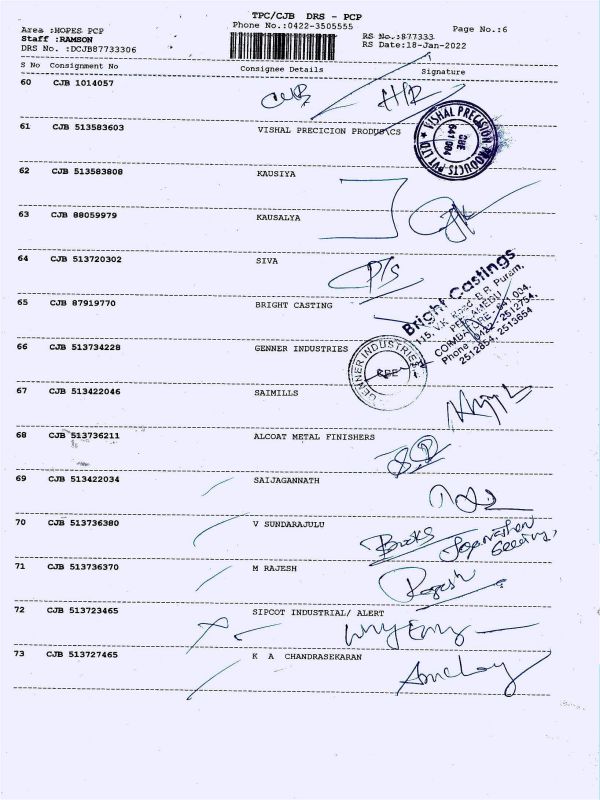 TPC/CJB DRS - PCP
Area :HOPES PCP
Phone No.:0422-3505555
Page No.:6
Staff :RAMSON
RS No.:877333
DRS No. :DCJB87733306
RS Date:18-Jan-2022
S No Consignment No Consignee Details Signature
60 CJB 1014057
61 CJB 513583603 VISHAL PRECICION PRODUS\CS
VISHAL PRECISION PRODUCTS PVT LTD
CBE
641 004
62 CJB 513583808 KAUSIYA
63 CJB 88059979 KAUSALYA
64 CJB 513720302 SIVA
65 CJB 87919770 BRIGHT CASTING
Bright Castings
115, V.K. Road, B.R. Puram,
PEELAMEDU
COIMBATORE - 641 004.
Phone: 0422- 2512754,
2512854, 2513654
66 CJB 513734228 GENNER INDUSTRIES
GENNER INDUSTRIES
CBE
67 CJB 513422046 SAIMILLS
68 CJB 513736211 ALCOAT METAL FINISHERS
69 CJB 513422034 SAIJAGANNATH
70 CJB 513736380 V SUNDARAJULU
71 CJB 513736370 M RAJESH
Rajesh
72 CJB 513723465 SIPCOT INDUSTRIAL/ ALERT
73 CJB 513727465 K A CHANDRASEKARAN